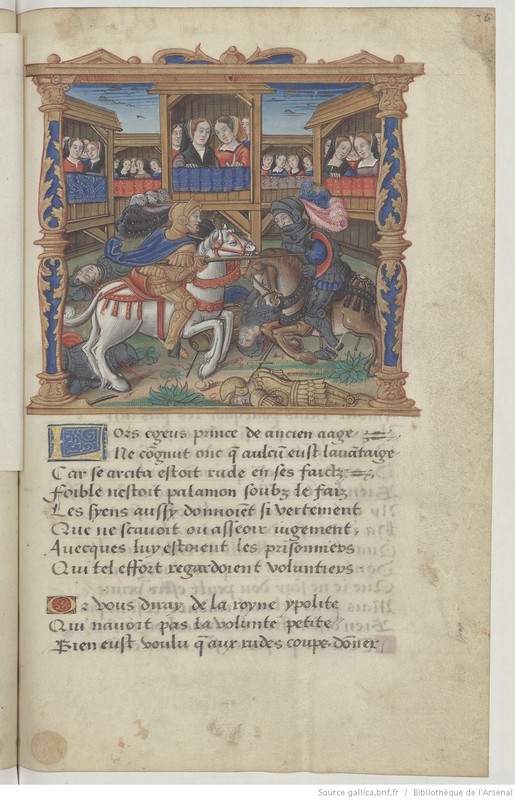 36
Lors egeus prince de ancien aage
Ne cognut onc q̃ aulcũ eust lavãtaige
Car se arcita estoit rude en ses faictz
Foible nestoit palamon soubz le faiz
Les syens aussy donnoiẽt si vertement
Que ne scavoit ou asseoir iugement,
Avecques luy estoient les prisonniers
Qui tel effort regardoient voluntiers.
Or vous diray de la royne ypolite
Qui navoit pas la volunte petite
Bien eust voulu q̃ aux rudes coups dõner
Source gallica.bnf.fr / Bibliothèque de l'Arsenal